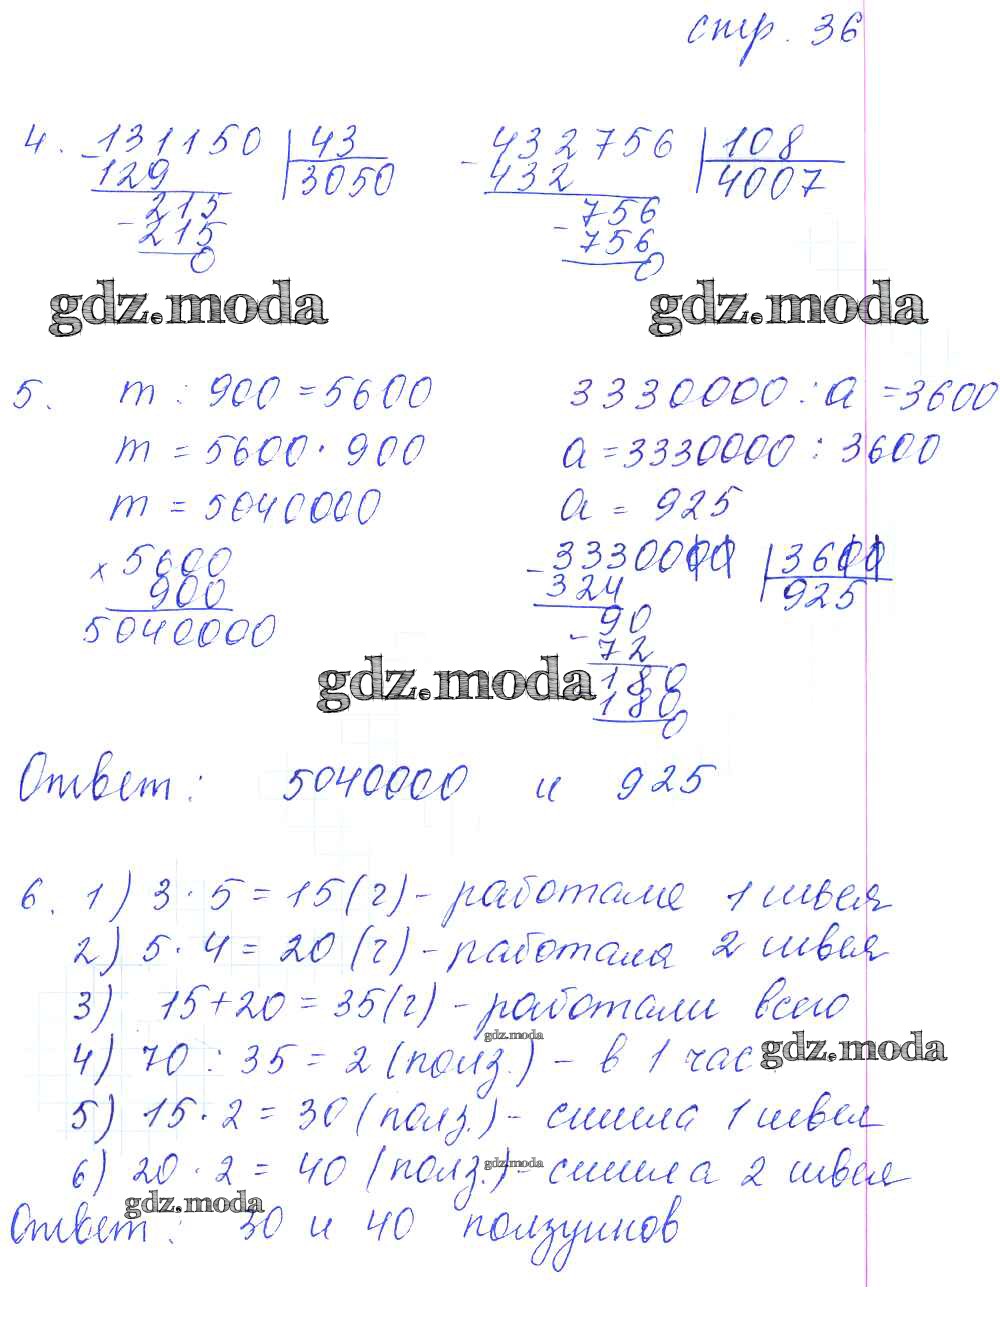 стр. 36
4. 131150 | 43      432756 | 108
- 129 | 3050      - 432 | 4007
215      756
- 215      - 756
0      0
gdz.moda      gdz.moda
5. m : 900 = 5600      3330000 : a = 3600
m = 5600 · 900      a = 3330000 : 3600
m = 5040000      a = 925
x 5600      - 3330000 | 3600
900      324 | 925
5040000      90
- 72
gdz.moda      180
180
0
Ответ: 5040000 и 925
6. 1) 3 · 5 = 15 (ч) - работала 1 швея
2) 5 · 4 = 20 (ч) - работала 2 швея
3) 15 + 20 = 35 (ч) - работали всего
gdz.moda
4) 70 : 35 = 2 (полз.) - в 1 час gdz.moda
5) 15 · 2 = 30 (полз.) - сшила 1 швея
6) 20 · 2 = 40 (полз.) - сшила 2 швея
gdz.moda
gdz.moda
Ответ: 30 и 40 ползунков